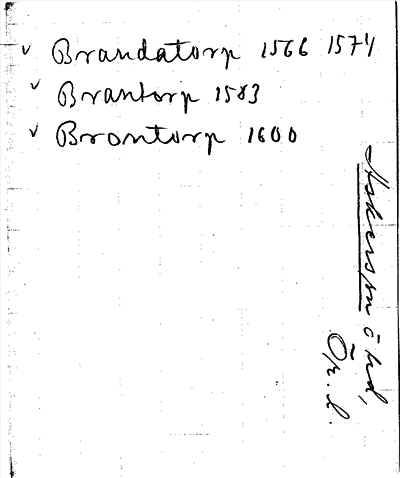 v Brandatorp 1566 1574
v Brantorp 1583
v Brontorp 1600
Askersun ö hd,
Ör. l.